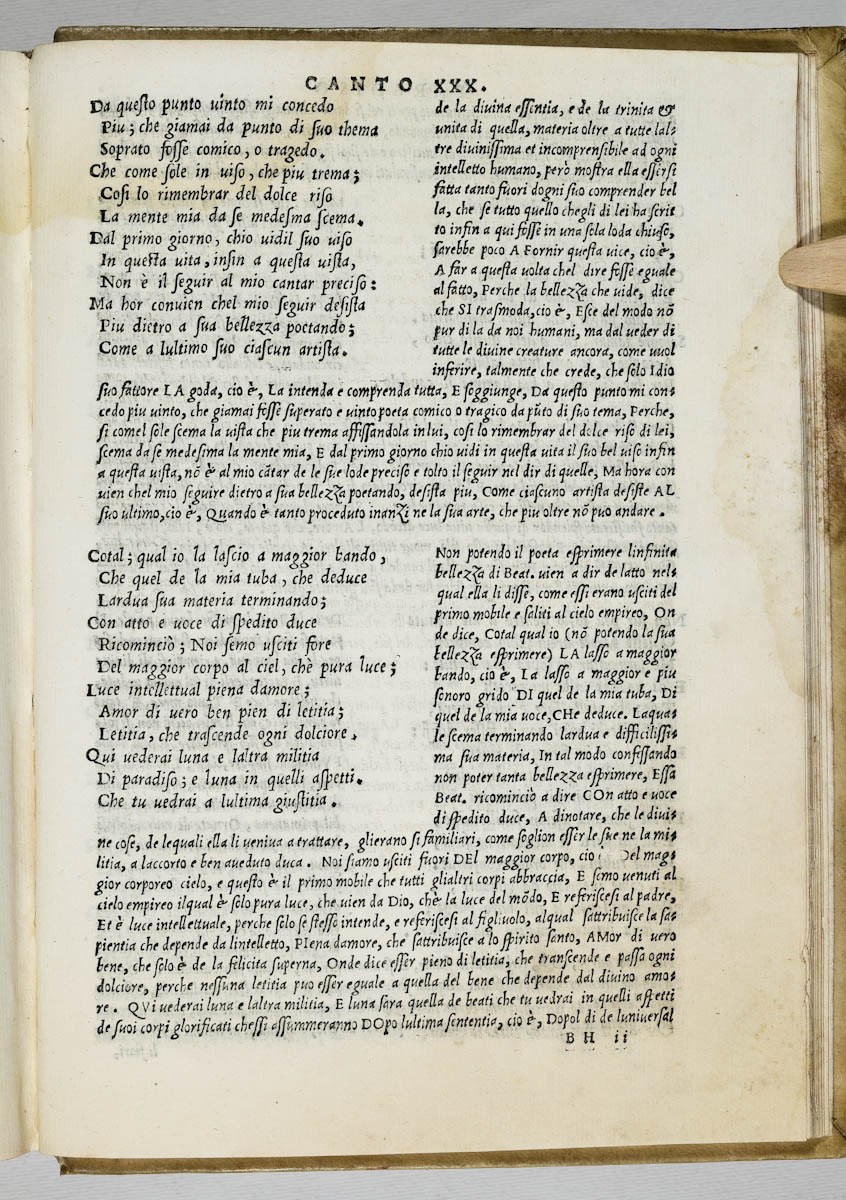 CANTO XXX.
Da questo punto uinto mi concedo
Piu; che giamai da punto di suo thema
Soprato fosse comico, o tragedo.
Che come sole in uiso, che piu trema;
Cosi lo rimembrar del dolce riso
La mente mia da se medesma scema.
Dal primo giorno, chio uidil suo uiso
In questa uita, insin a questa uista,
Non è il seguir al mio cantar preciso:
Ma hor conuien chel mio seguir desista
Piu dietro a sua bellezza poetando;
Come a lultimo suo ciascun artista.
de la diuina essentia, e de la trinita &
unita di quella, materia oltre a tutte lal-
tre diuinissima et incomprensibile ad ogni
intelletto humano, però mostra ella essersi
fatta tanto fuori dogni suo comprender bel
la, che se tutto quello chegli di lei ha scrit
to infin a qui fosse in una sola loda chiuso,
sarebbe poco A Fornir questa uice, cio è,
A far a questa uolta chel dire fosse eguale
al fatto, Perche la bellezza che uide, dice
che SI trasmoda, cio è, Esce del modo nõ
pur di la da noi humani, ma dal ueder di
tutte le diuine creature ancora, come uuol
inferire, talmente che crede, che solo Idio
suo fattore LA goda, cio è, La intenda e comprenda tutta, E soggiunge, Da questo punto mi con-
cedo piu uinto, che giamai fosse superato e uinto poeta comico o tragico da pũto di suo tema, Perche,
si comel sole scema la uista che piu trema affissandola in lui, cosi lo rimembrar del dolce riso di lei,
scema da se medesima la mente mia, E dal primo giorno chio uidi in questa uita il suo bel uiso infin
a questa uista, nõ è al mio cãtar de le sue lode preciso e tolto il seguir nel dir di quelle, Ma hora con
uien chel mio seguire dietro a sua bellezza poetando, desista piu, Come ciascuno artista desiste AL
suo ultimo, cio è, Quando è tanto proceduto inanzi ne la sua arte, che piu oltre nõ puo andare.
Cotal; qual io la lascio a maggior bando,
Che quel de la mia tuba, che deduce
Lardua sua materia terminando;
Con atto e uoce di spedito duce
Ricominciò; Noi semo usciti fore
Del maggior corpo al ciel, chè pura luce;
Luce intellettual piena damore;
Amor di uero ben pien di letitia;
Letitia, che trascende ogni dolciore.
Qui uederai luna e laltra militia
Di paradiso; e luna in quelli aspetti.
Che tu uedrai a lultima giustitia.
Non potendo il poeta esprimere linfinita
bellezza di Beat. uien a dir de latto nel-
qual ella li disse, come essi erano usciti del
primo mobile e saliti al cielo empireo, On
de dice, Cotal qual io (nõ potendo la sua
bellezza esprimere) LA lasso a maggior
bando, cio è, La lasso a maggior e piu
sonoro grido DI quel de la mia tuba, Di
quel de la mia uoce, CHe deduce. Laqua-
le scema terminando lardua e difficilissi-
ma sua materia, In tal modo confissando
non poter tanta bellezza esprimere, Essa
Beat. ricominciò a dire COn atto e uoce
di spedito duce, A dinotare, che le diui-
ne cose, de lequali ella li ueniua a trattare, glierano si familiari, come soglion esser le sue ne la mi-
litia, a laccorto e ben aueduto duca. Noi siamo usciti fuori DEl maggior corpo, cio Del mag-
gior corporeo cielo, e questo è il primo mobile che tutti glialtri corpi abbraccia, E semo uenuti al
cielo empireo ilqual è solo pura luce, che uien da Dio, chè la luce del mõdo, E referiscesi al padre,
Et è luce intellettuale, perche solo se stesso intende, e referiscesi al figliuolo, alqual sattribuisce la sa-
pientia che depende da lintelletto, PIena damore, che sattribuisce a lo spirito santo, AMor di uero
bene, che solo è de la felicita superna, Onde dice esser pieno di letitia, che transcende e passa ogni
dolciore, perche nessuna letitia puo esser eguale a quella del bene che depende dal diuino amo-
re. QVi uederai luna e laltra militia, E luna sara quella de beati che tu uedrai in quelli aspetti
de suoi corpi glorificati chessi assummeranno DOpo lultima sententia, cio è, Dopol di de luniuersal
BH ii